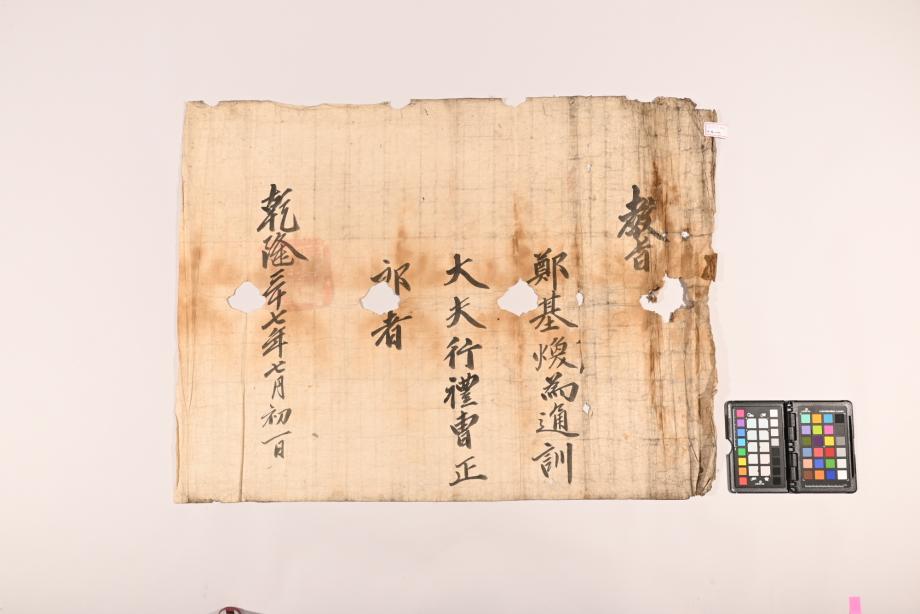 教旨
鄭基煥為通訓
大夫行禮曹正
郎者
乾隆二十七年七月初一日